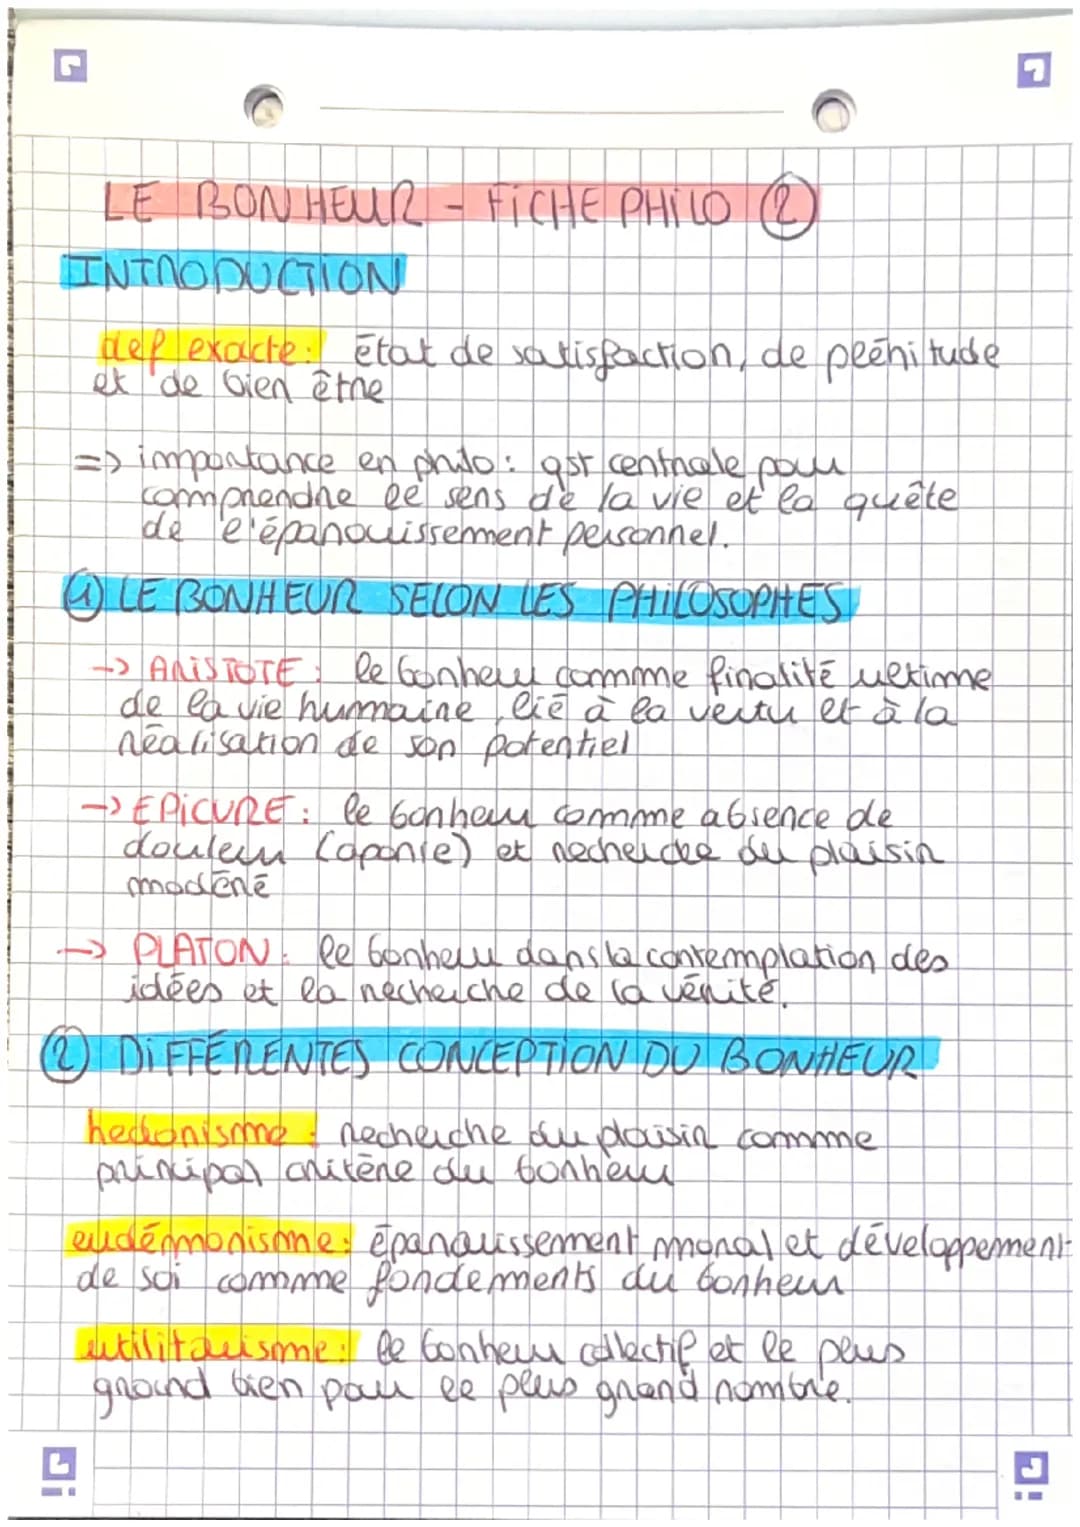 LE BONHEUR - FICHE PHILO ②
INTRODUCTION
def exacte: état de satisfaction, de plénitude
et de bien être
=> importance en philo: qst centrale pour
comprendre le sens de la vie et la quête
de l'épanouissement personnel.
① LE BONHEUR SELON LES PHILOSOPHES
-> ARISTOTE : le bonheur comme finalité ultime
de la vie humaine, lié à la vertu et à la
réalisation de son potentiel
-> EPICURE : le bonheur comme absence de
douleur (aponie) et recherche du plaisir
modéré
-> PLATON : le bonheur dans la contemplation des
idées et la recherche de la vérité.
② DIFFÉRENTES CONCEPTION DU BONHEUR
hedonisme : recherche du plaisir comme
principal critère du bonheur
eudémonisme : épanouissement moral et développement
de soi comme fondements du bonheur
utilitarisme : le bonheur collectif et le plus
grand bien pour le plus grand nombre.